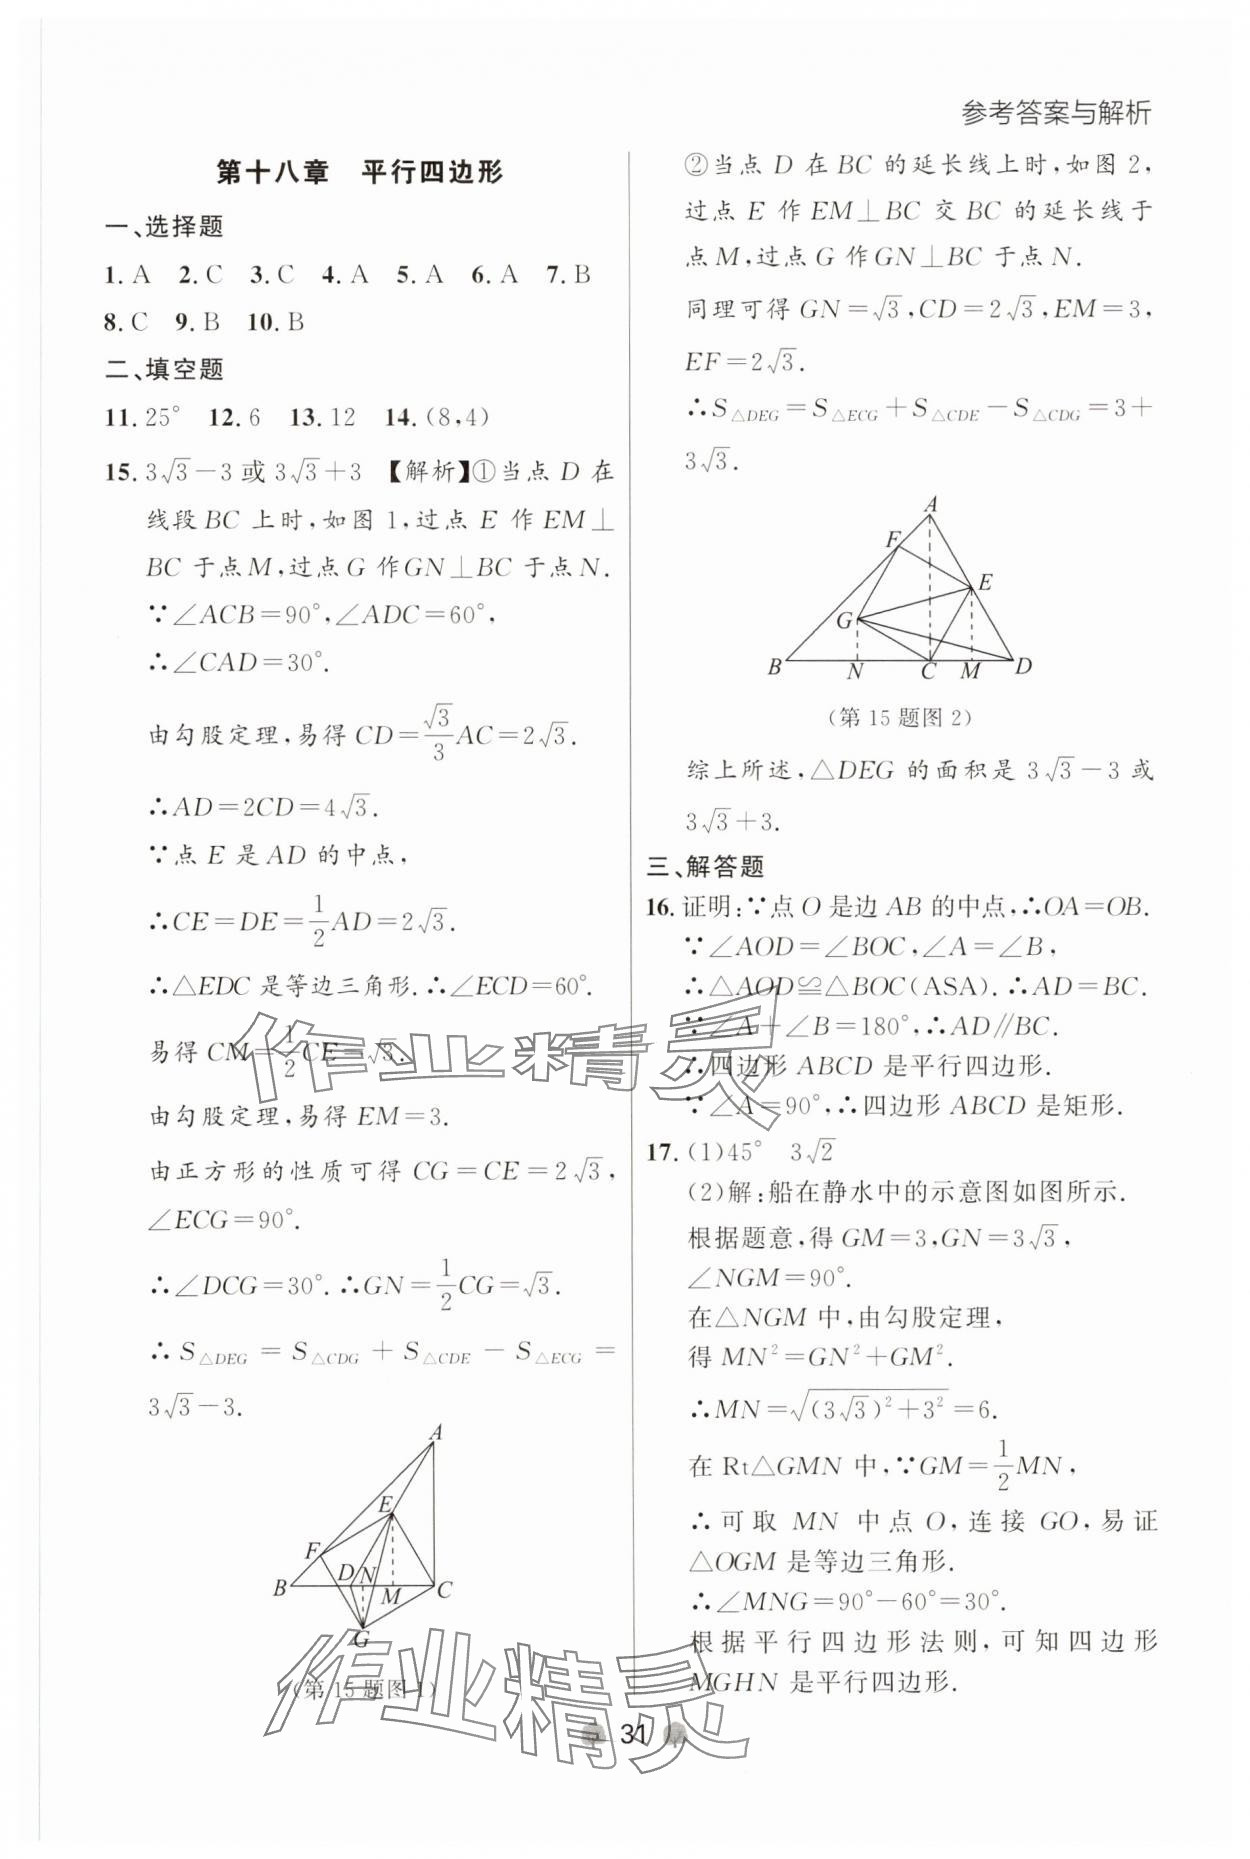 参考答案与解析
第十八章　平行四边形
一、选择题
1. A　2. C　3. C　4. A　5. A　6. A　7. B
8. C　9. B　10. B
二、填空题
11. 25°　12. 6　13. 12　14. (8,4)
15. 3√3−3或3√3+3　【解析】①当点 D 在
线段 BC 上时,如图 1,过点 E 作 EM⊥
BC 于点 M,过点 G 作 GN⊥BC 于点 N.
∵∠ACB=90°,∠ADC=60°,
∴∠CAD=30°.
由勾股定理,易得 CD=√3/3 AC=2√3.
∴AD=2CD=4√3.
∵点 E 是 AD 的中点,
∴CE=DE=1/2 AD=2√3.
∴△EDC 是等边三角形.∴∠ECD=60°.
易得 CM=1/2 CE=√3.
由勾股定理,易得 EM=3.
由正方形的性质可得 CG=CE=2√3,
∠ECG=90°.
∴∠DCG=30°.∴GN=1/2 CG=√3.
∴S△DEG=S△CDG+S△CDE−S△ECG=
3√3−3.
A
E
F
B
D
N
M
C
G
(第 15 题图 1)
②当点 D 在 BC 的延长线上时,如图 2,
过点 E 作 EM⊥BC 交 BC 的延长线于
点 M,过点 G 作 GN⊥BC 于点 N.
同理可得 GN=√3,CD=2√3,EM=3,
EF=2√3.
∴S△DEG=S△ECG+S△CDE−S△CDG=3+
3√3.
A
F
E
G
B
N
C
M
D
(第 15 题图 2)
综上所述,△DEG 的面积是 3√3−3 或
3√3+3.
三、解答题
16. 证明:∵点 O 是边 AB 的中点,∴OA=OB.
∵∠AOD=∠BOC,∠A=∠B,
∴△AOD≌△BOC(ASA).∴AD=BC.
∵∠A+∠B=180°,∴AD∥BC.
∴四边形 ABCD 是平行四边形.
∵∠A=90°,∴四边形 ABCD 是矩形.
17. (1)45°　3√2
(2)解:船在静水中的示意图如图所示.
根据题意,得 GM=3,GN=3√3,
∠NGM=90°.
在△NGM 中,由勾股定理,
得 MN²=GN²+GM².
∴MN=√((3√3)²+3²)=6.
在 Rt△GMN 中,∵GM=1/2 MN,
∴可取 MN 中点 O,连接 GO,易证
△OGM 是等边三角形.
∴∠MNG=90°−60°=30°.
根据平行四边形法则,可知四边形
MGHN 是平行四边形.
31
作业精灵
作业精灵